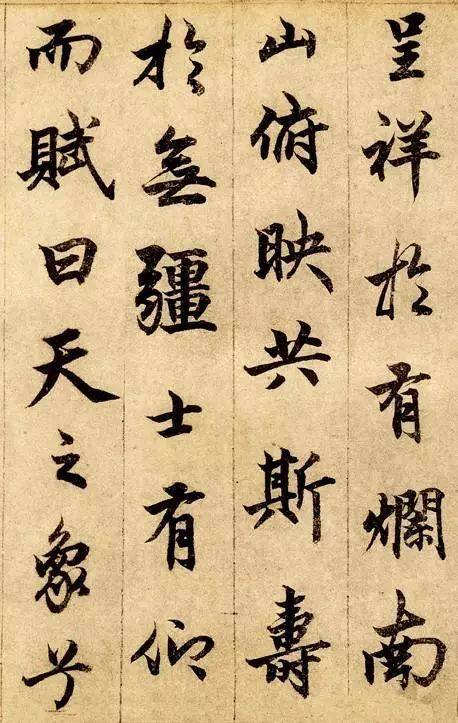 呈祥於有爛南
山俯映共斯壽
於無疆士有仰
而賦曰天之象兮